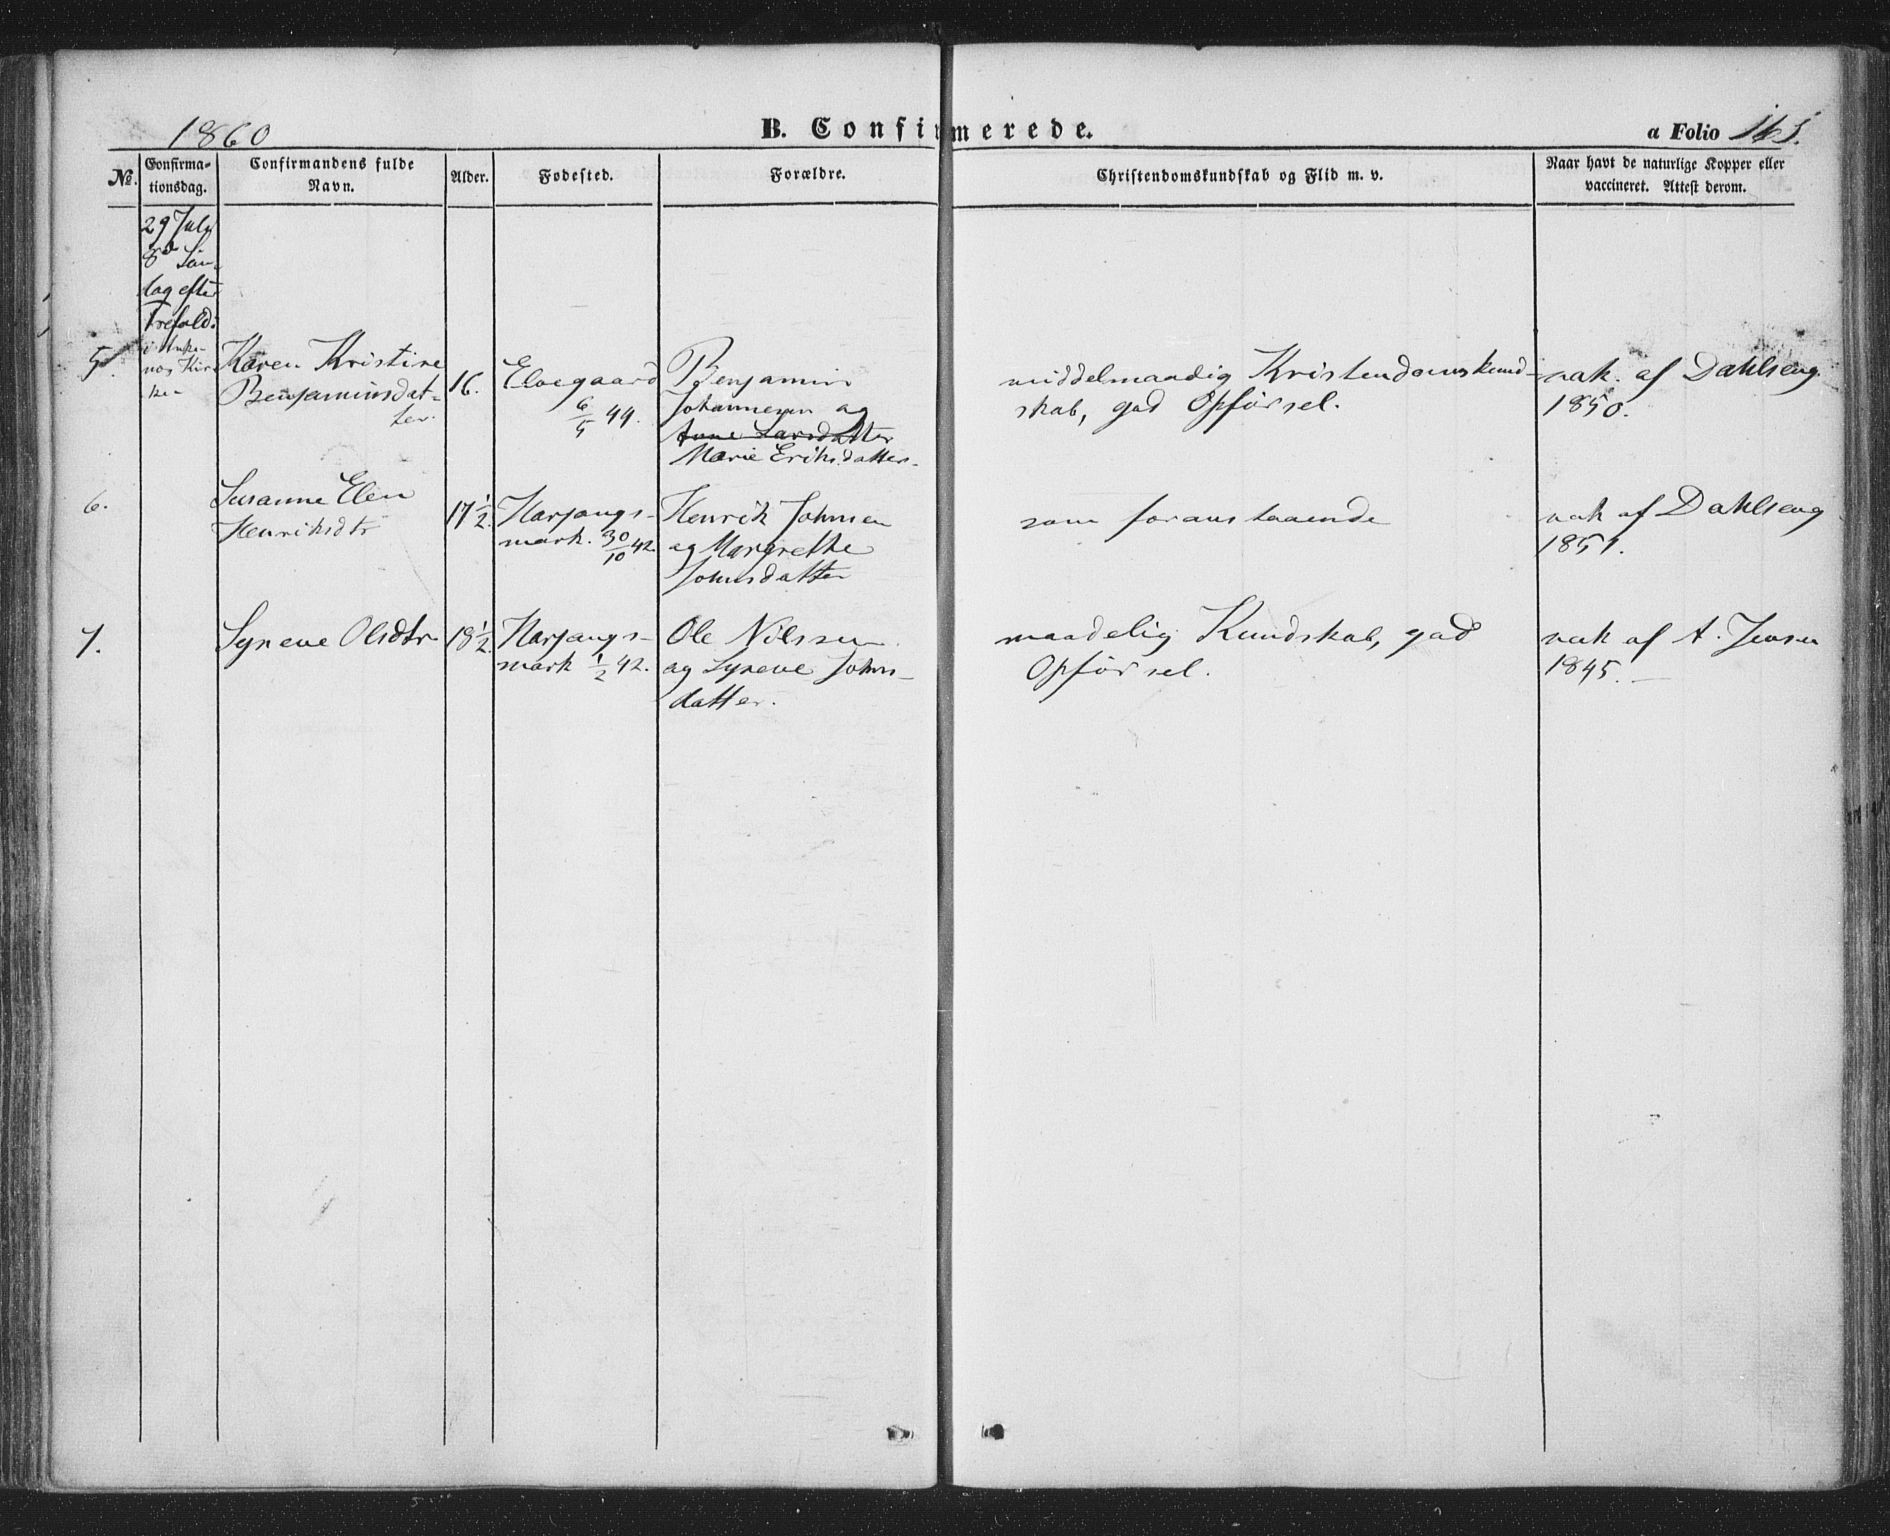 1860
B. Confirmerede.
a Folio 165.
No.
Confirma-
tionsdag.
Confirmandens fulde
Navn.
Alder.
Fødested.
Forældre.
Christendomskundskab og Flid m. v.
Naar havt de naturlige Kopper eller
vaccineret. Attest derom.
29 July
8de Søn-
dag efter
Trefold:
i Anke-
nos Kir
ken
5.
Karen Kristine
Benjaminsdat-
ter.
16.
Elvegaard
6/5 44.
Benjamin
Johannesen og
Anne Larsdatter
Marie Eriksdatter.
middelmaadig Kristendomskund-
skab, god Opførsel.
vak. af Dahlseng
1850.
6.
Susanne Elen
Henriksdtr
17 1/2
Harjangs-
mark. 30/10 42
Henrik Johnsen
og Margrethe
Johnsdatter
som foranstaaende
vak af Dahlseng
1851.
7.
Syneve Olsdtr
18 1/2
Harjangs-
mark 1/2 42.
Ole Nilssen
og Syneve Johns-
datter.
maadelig Kundskab, god
Opførsel.
vak af A. Jensen
1845.